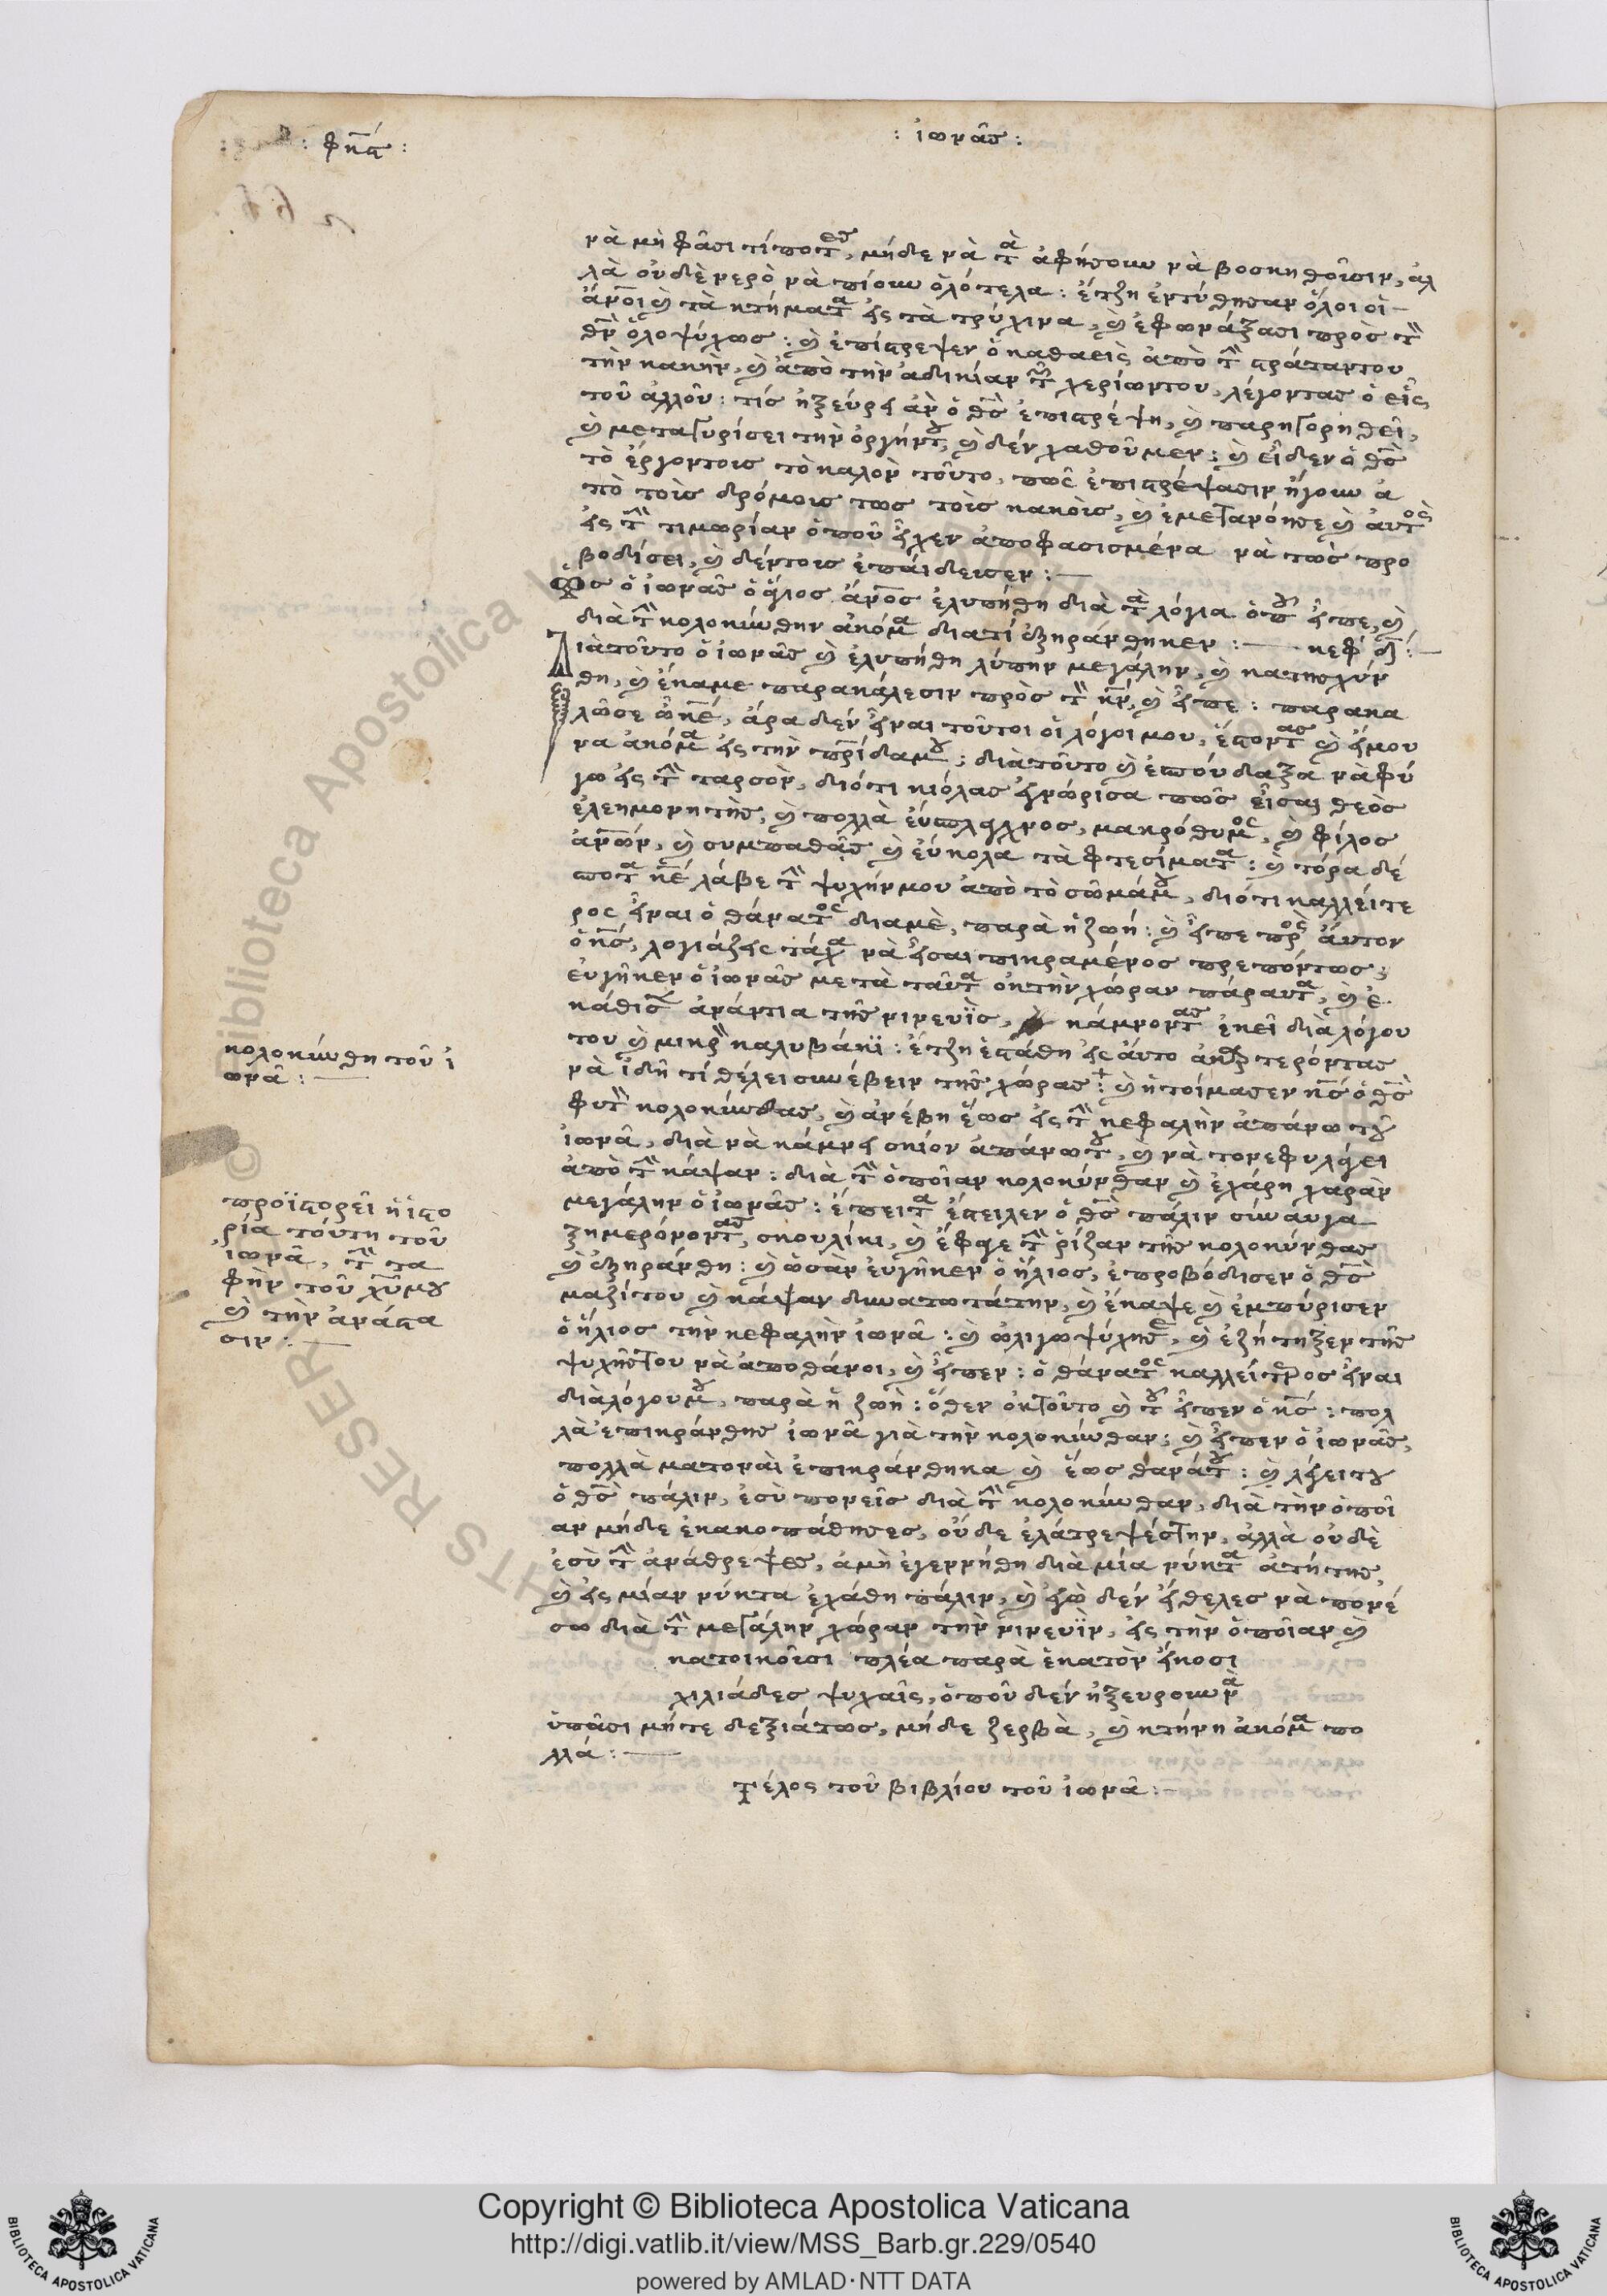 : ἰωνᾶς :
νὰ μὴ φᾶσι τίποτες, μήδε νὰ τὰ ἀφήσουν νὰ βοσκηθοῦσιν, ἀλ
λὰ οὐδὲ νερὸ νὰ πίουν ὁλότελα : ἔτζη ἐντύθησαν ὅλοι οἱ
ἄνοι καὶ τὰ κτήματα εἰς τὰ τρύχινα, καὶ ἐφωνάξασι πρὸς τὸν
θν ὁλοψύχως : καὶ ἐπίστρεψεν ὁ καθαεὶς ἀπὸ τὴν στράταντου
τὴν κακὴν, καὶ ἀπὸ τὴν ἀδικίαν τῶν χερίωντου, λέγοντας ὁ εἷς
τοῦ ἀλλοῦ : τίς ἠξεύρει ἂν ὁ θς ἐπιστρέψη, καὶ παρηγορηθεῖ,
καὶ μεταγυρίσει τὴν ὀργήντου, καὶ δὲν χαθοῦμεν : καὶ εἶδεν ὁ θς
τὸ ἔργοντοις τὸ καλὸν τοῦτο, πῶς ἐπιστρέψασιν ἤγουν ἀ
πὸ τοὶς δρόμοις τως τοὶς κακοὶς, καὶ ἐμετανόησε καὶ αὐτὸς
εἰς τὴν τιμωρίαν ὁποῦ εἶχεν ἀποφασισμένα νὰ τὼς προ
βοδίσει, καὶ δέντοις ἐπαίδεισεν :
Πῶς ὁ ἰωνᾶς ὁ ἅγιος ἄνος ἐλυπήθη διὰ τὰ λόγια ὁποῦ εἶπε, καὶ
διὰ τὴν κολοκύνθην ἀκόμα διατί ἐξηράνθηκεν : κεφ δ :
Διὰτοῦτο ὁ ἰωνᾶς καὶ ἐλυπήθη λύπην μεγάλην, καὶ κατησχύν
θη, καὶ ἔκαμε παρακάλεσιν πρὸς τὸν κν, καὶ εἶπε : παρακα
λῶσε ὦ κε, ἄρα δὲν εἶναι τοῦτοι οἱ λόγοι μου, ἔστοντας καὶ εἴμου
να ἀκόμα εἰς τὴν πρίδαμου ; διὰτοῦτο καὶ ἐσπούδαξα νὰ φύ
γω εἰς τὴν ταρσὸν, διότι κιόλας ἐγνώρισα πῶς εἶσαι θεὸς
ἐλεημονητὴς, καὶ πολλὰ εὔσπλαχνος, μακρόθυμος, καὶ φίλος
ἀνων, καὶ συμπαθᾶς καὶ εὔκολα τὰ φτεσίματα : καὶ τόρα δέ
σποτα κε λάβε τὴν ψυχήν μου ἀπὸ τὸ σῶμάμου, διότι καλλείτε
ρος εἶναι ὁ θάνατος διαμὲ, παρὰ ἡ ζωή : καὶ εἶπε πρὸς αὔτον
ὁ κς, λογιάζεις τάχα νὰ εἶσαι πικραμένος πρεπόντως ;
εὐγῆκεν ὁ ἰωνᾶς μετὰ ταῦτα ἐκ τὴν χώραν πάραυτα, καὶ ἐ
κάθισεν ἀνάντια τῆς νινευῒς, κάμνοντας ἐκεῖ διὰ λόγου
του καὶ μικρὸν καλυβάκϊ : ἔτζη ἐστάθη εἰς αὖτο ἀκαρτερόντας
νὰ ἰδῆ τί θέλει συνέβειν τῆς χώρας : καὶ ἡτοίμασεν κς ὁ θς
φυτὸν κολοκύνθας, καὶ ἀνέβη ἕως εἰς τὴν κεφαλὴν ἀπάνω τοῦ
ἰωνᾶ, διὰ νὰ κάμνει σκίον ἀπάνωτου, καὶ νὰ τονεφυλάγει
ἀπὸ τὴν κάψαν : διὰ τὴν ὁποῖαν κολοκύνθαν καὶ ἐχάρη χαρὰν
μεγάλην ὁ ἰωνᾶς : ἔπειτα ἔστειλεν ὁ θς πάλιν σύναυγα
ξημερόνοντας, σκουλίκι, καὶ ἔφαγε τὴν ῥίζαν τῆς κολοκύνθας
καὶ ἐξηράνθη : καὶ ὡσὰν εὐγῆκεν ὁ ἥλιος, ἐπροβόδισεν ὁ θς
μαζίτου καὶ κάψαν δυνατωτάτην, καὶ ἔκαψε καὶ ἐμπύρισεν
ὁ ἥλιος τὴν κεφαλὴν ἰωνᾶ : καὶ ὠλιγωψύχησε, καὶ ἐζήτηξεν τῆς
ψυχῆςτου νὰ ἀποθάνοι, καὶ εἶπεν : ὁ θάνατος καλλείτερος εἶναι
διὰλόγουμου, παρὰ ἡ ζωὴ : ὅθεν ἐκτοῦτο καὶ τοῦ εἶπεν ὁ κς : πολ
λὰ ἐπικράνθης ἰωνᾶ γιὰ τὴν κολοκύνθαν ; καὶ εἶπεν ὁ ἰωνᾶς,
πολλὰ ματοναὶ ἐπικράνθηκα καὶ ἕως θανάτου : καὶ λέγει του
ὁ θς πάλιν, ἐσὺ πονεῖς διὰ τὴν κολοκύνθαν, διὰ τὴν ὁποῖ
αν μήδε ἐκακοπάθησες, οὔδε ἐλάτρεψέςτην, ἀλλὰ οὐδὲ
ἐσὺ τὴν ἀνάθρεψες, ἀμὴ ἐγεννήθη διὰ μία νύκτα ἀτήτης,
καὶ εἰς μίαν νύκτα ἐχάθη πάλιν, καὶ ἐγὼ δὲν ἤθελες νὰ πονέ
σω διὰ τὴν μεγάλην χώραν τὴν νινευῒν, εἰς τὴν ὁποῖαν καὶ
κατοικοῦσι πλέα παρὰ ἑκατὸν εἴκοσι
χιλιάδες ψυχαῖς, ὁποῦ δὲν ἠξευρουν νὰ
ὑπᾶσι μήτε δεξιάτως, μήδε ζερβὰ, καὶ κτήνη ἀκόμα πο
λλά :
Τέλος τοῦ βιβλίου τοῦ ἰωνᾶ :
κολοκύνθη τοῦ ἰ
ωνᾶ :
προϊστορεῖ ἡ ἱστο
ρία τούτη τοῦ
ἰωνᾶ, τὴν τα
φὴν τοῦ χυ μου
καὶ τὴν ἀνάστα
σιν :
Copyright © Biblioteca Apostolica Vaticana
http://digi.vatlib.it/view/MSS_Barb.gr.229/0540
powered by AMLAD·NTT DATA
BIBLIOTECA APOSTOLICA VATICANA
BIBLIOTECA APOSTOLICA VATICANA